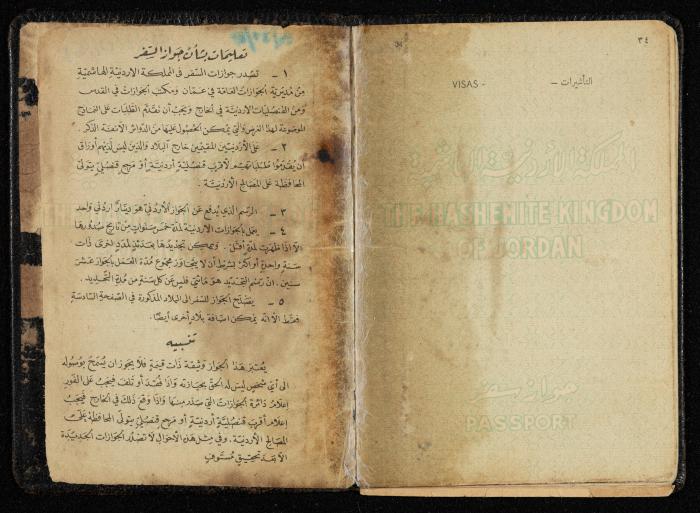 تعليمات بشأن جواز السفر
١ - تصدر جوازات السفر في المملكة الاردنية الهاشمية
من مديرية الجوازات العامة في عمان ومكتب الجوازات في القدس
ومن القنصليات الاردنية في الخارج ويجب أن تقدم الطلبات على النماذج
الموضوعة لهذا الغرض والتي يمكن الحصول عليها من الدوائر الآنفة الذكر.
٢ - على الأردنيين المقيمين خارج البلاد والذين ليس لديهم أوراق
أن يقدموا طلباتهم لأقرب قنصلية أردنية أو مرجع قنصلي يتولى
المحافظة على المصالح الأردنية.
٣ - الرسم الذي يدفع عن الجواز الأردني هو دينار أردني واحد
٤ - يعمل بالجوازات الاردنية لمدة خمس سنوات من تاريخ صدورها
الا اذا ظهرت لمدة أقل. ويمكن تجديدها بعدئذ لمدة اخرى ذات
سنة واحدة أو أكثر بشرط أن لا يتجاوز مجموع مدة العمل بالجواز عشر
سنين. ان رسم التجديد هو مائتي فلس عن كل سنة من مدة التجديد.
٥ - يصلح الجواز للسفر الى البلاد المذكورة في الصفحة السادسة
فقط الا انه يمكن اضافة بلاد أخرى أيضا.
تنبيه
يعتبر هذا الجواز وثيقة ذات قيمة فلا يجوز ان يسمح بوصوله
الى أي شخص ليس له الحق بحيازته واذا فقد أو تلف فيجب على الفور
إعلام دائرة الجوازات التي صدر منها واذا وقع ذلك في الخارج فيجب
إعلام أقرب قنصلية أردنية أو مرجع قنصلي يتولى المحافظة على
المصالح الأردنية. وفي مثل هذه الاحوال لا تصدر الجوازات الجديدة
الا بعد تحقيق مستوف
٣٤
التأشيرات - VISAS -
المملكة الأردنية الهاشمية
THE HASHEMITE KINGDOM
OF JORDAN
جواز سفر
PASSPORT